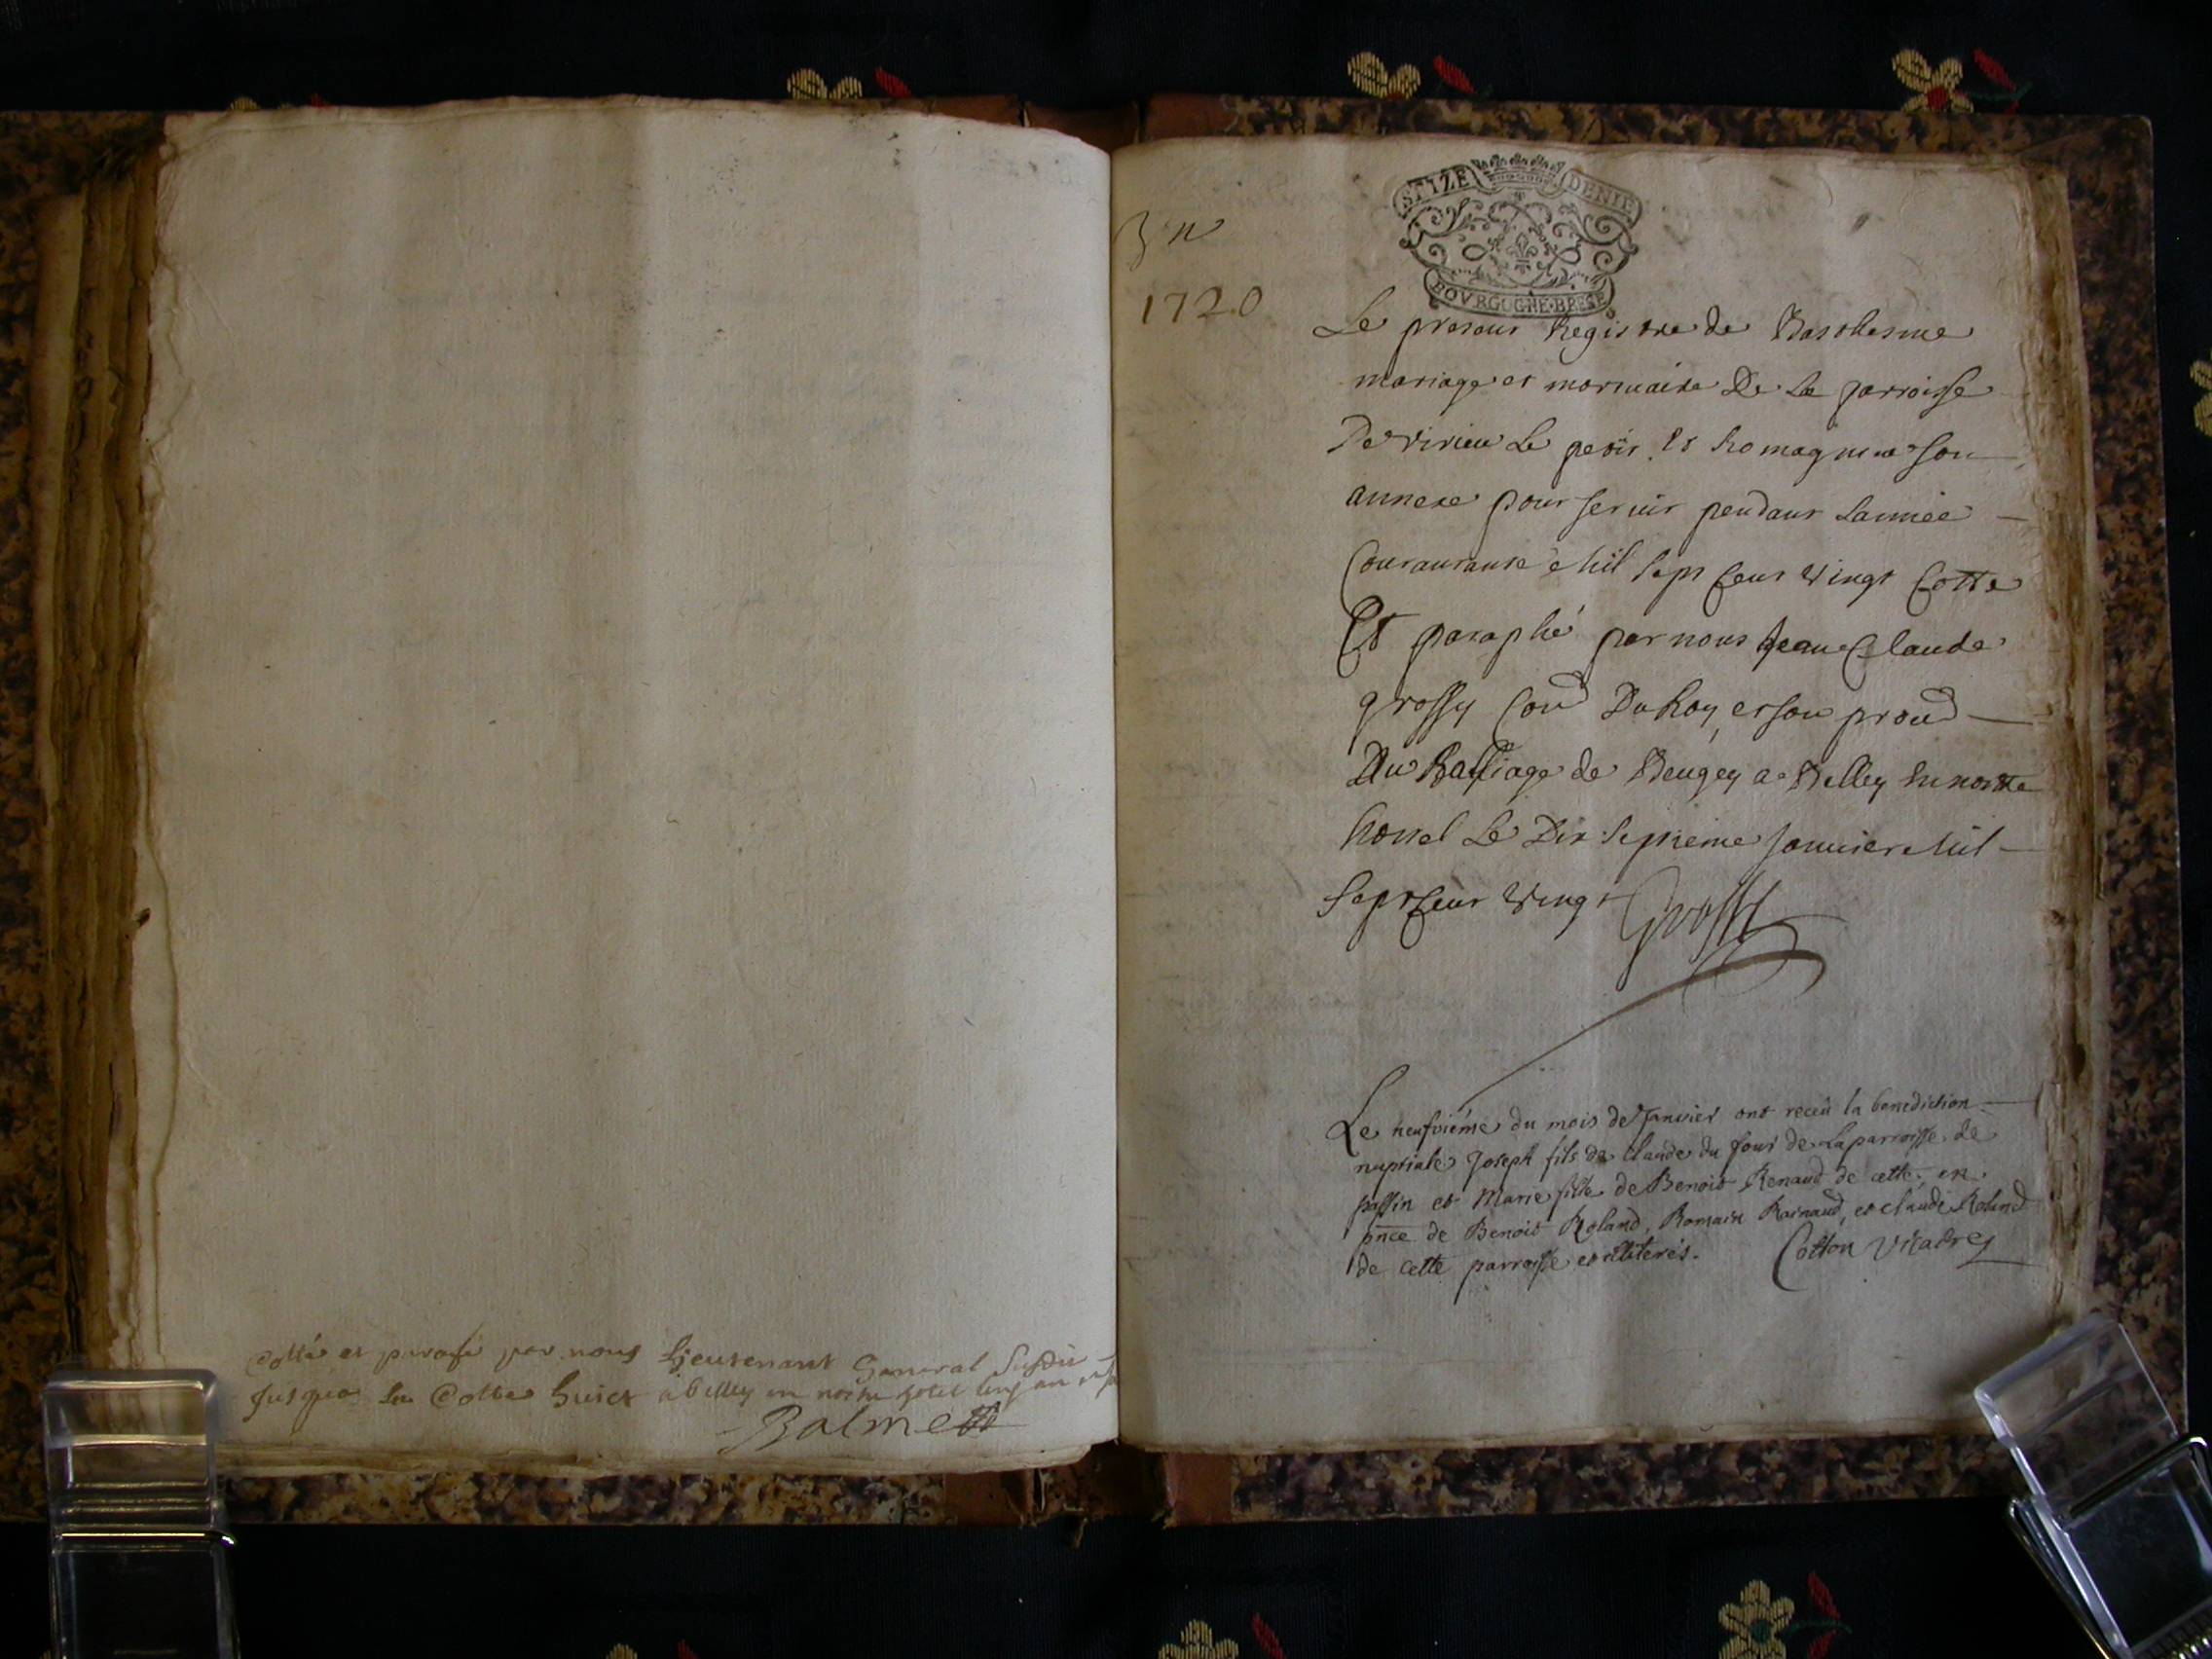 Cotté et parafé par nous Lieutenant General susdit
Jusques la Cotte huict a belley en nostre hotel
Balme
1720
SEIZE DENIE
BOVRGOGNE·BRESE
Le present Registre de Baptesme
mariage et mortuaire De La parroisse
De Virieu Le petit Et Romagnieu son
annexe pour servir pendant Lannée
Courantante Mil Sept Cent Vingt Cotte
Et paraphé par nous Jean Claude
grossy Con.r Du Roy, et son
Du Balliage de Beugey a Belley En nostre
hostel Le Dix Septieme Janvier Mil
Sept Cent Vingt Grossy
Le neufvième du mois de Janvier ont reçeu la benediction
nuptiale Joseph fils de Claude du four de La parroisse de
passin et Marie fille de Benoit Renaud de cette, en
pnce de Benoit Roland, Romain Rainaud, et claude Roland
de cette parroisse et illiterés. Cotton